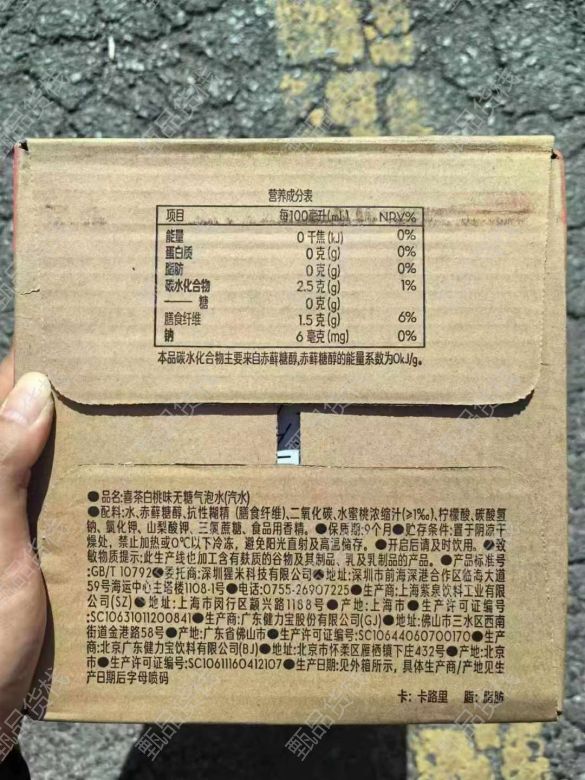 营养成分表
项目 每100毫升(mL) NRV%
能量 0 千焦(kJ) 0%
蛋白质 0 克(g) 0%
脂肪 0 克(g) 0%
碳水化合物 2.5 克(g) 1%
—— 糖 0 克(g)
膳食纤维 1.5 克(g) 6%
钠 6 毫克(mg) 0%
本品碳水化合物主要来自赤藓糖醇,赤藓糖醇的能量系数为0kJ/g。
●品名:喜茶白桃味无糖气泡水(汽水)
●配料:水、赤藓糖醇、抗性糊精(膳食纤维)、二氧化碳、水蜜桃浓缩汁(≥1‰)、柠檬酸、碳酸氢
钠、氯化钾、山梨酸钾、三氯蔗糖、食品用香精。●保质期:9个月●贮存条件:置于阴凉干
燥处，禁止加热或0℃以下冷冻，避免阳光直射及高温储存。●开启后请及时饮用。●致
敏物质提示:此生产线也加工含有麸质的谷物及其制品、乳及乳制品的产品。●产品标准号
:GB/T 10792●委托商:深圳猩米科技有限公司●地址:深圳市前海深港合作区临海大道
59号海运中心主塔楼1108-1号●电话:0755-26907225●生产商:上海紫泉饮料工业有限
公司(SZ)●地址:上海市闵行区颛兴路1188号●产地:上海市●生产许可证编号
:SC10631011200841●生产商:广东健力宝股份有限公司(GJ)●地址:佛山市三水区西南
街道金港路58号●产地:广东省佛山市●生产许可证编号:SC10644060700170●生产
商:北京广东健力宝饮料有限公司(BJ)●地址:北京市怀柔区雁栖镇下庄432号●产地:北京
市●生产许可证编号:SC10611160412107●生产日期:见外箱所示，具体生产商/产地见生
产日期后字母喷码
卡：卡路里 脂：脂肪
甄品货栈